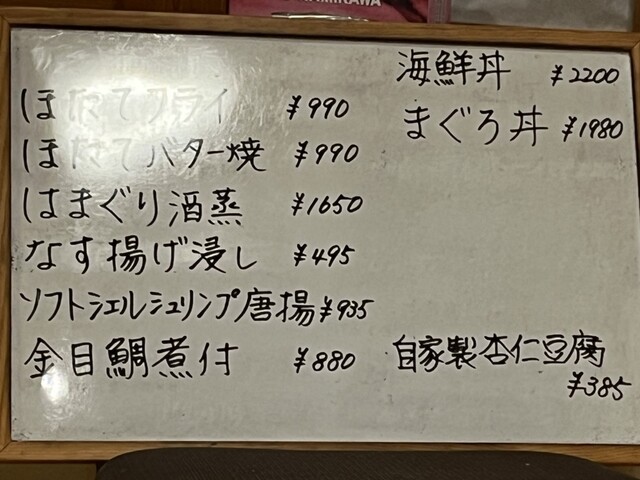 ほたてフライ ¥990
ほたてバター焼 ¥990
はまぐり酒蒸 ¥1650
なす揚げ浸し ¥495
ソフトシェルシュリンプ唐揚 ¥935
金目鯛煮付 ¥880
海鮮丼 ¥2200
まぐろ丼 ¥1980
自家製杏仁豆腐
¥385